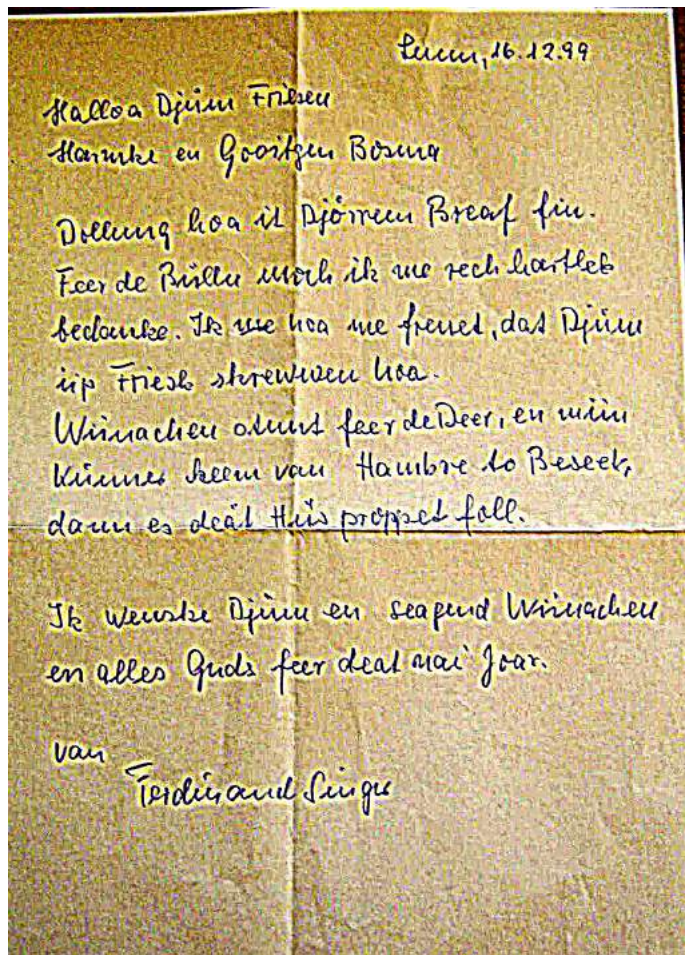 Lunn, 16.12.99
Halloa Djüm Friesen
Hannke en Gooitzen Bosma
Dollung hoa it Djörrem Breaf fin.
Feer de Büllu moch ik me rech hartleb
bedanke. Ik hoa me freuet, dat Djüm
üp Friesk skrewwen hoa.
Wiinachen stunt feer de Deer, en miin
Künner keem van Hambre to Beseek,
dann es deät Hüs proppet foll.
Ik wenske Djüm en seagend Wiinachen
en alles Guds feer deat nai Joar.
van
Ferdinand Singer